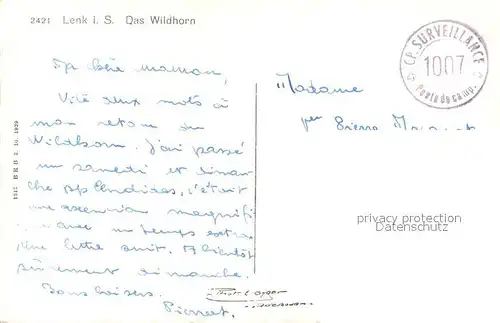 2421 Lenk i. S. Das Wildhorn
CP. SURVEILLANCE
1007
Poste de camp.
Ma bien maman,
Vite deux mots à
mon retour du
Wildhorn. J'ai passé
un samedi et diman
che splendides, c'était
une ascension magnifi
avec un temps
Une lettre suit. A bientôt
sûrement dimanche.
Bons baisers.
Pierret.
Madame
Pierre
privacy protection
Datenschutz
1517 B R B 3. 10. 1929